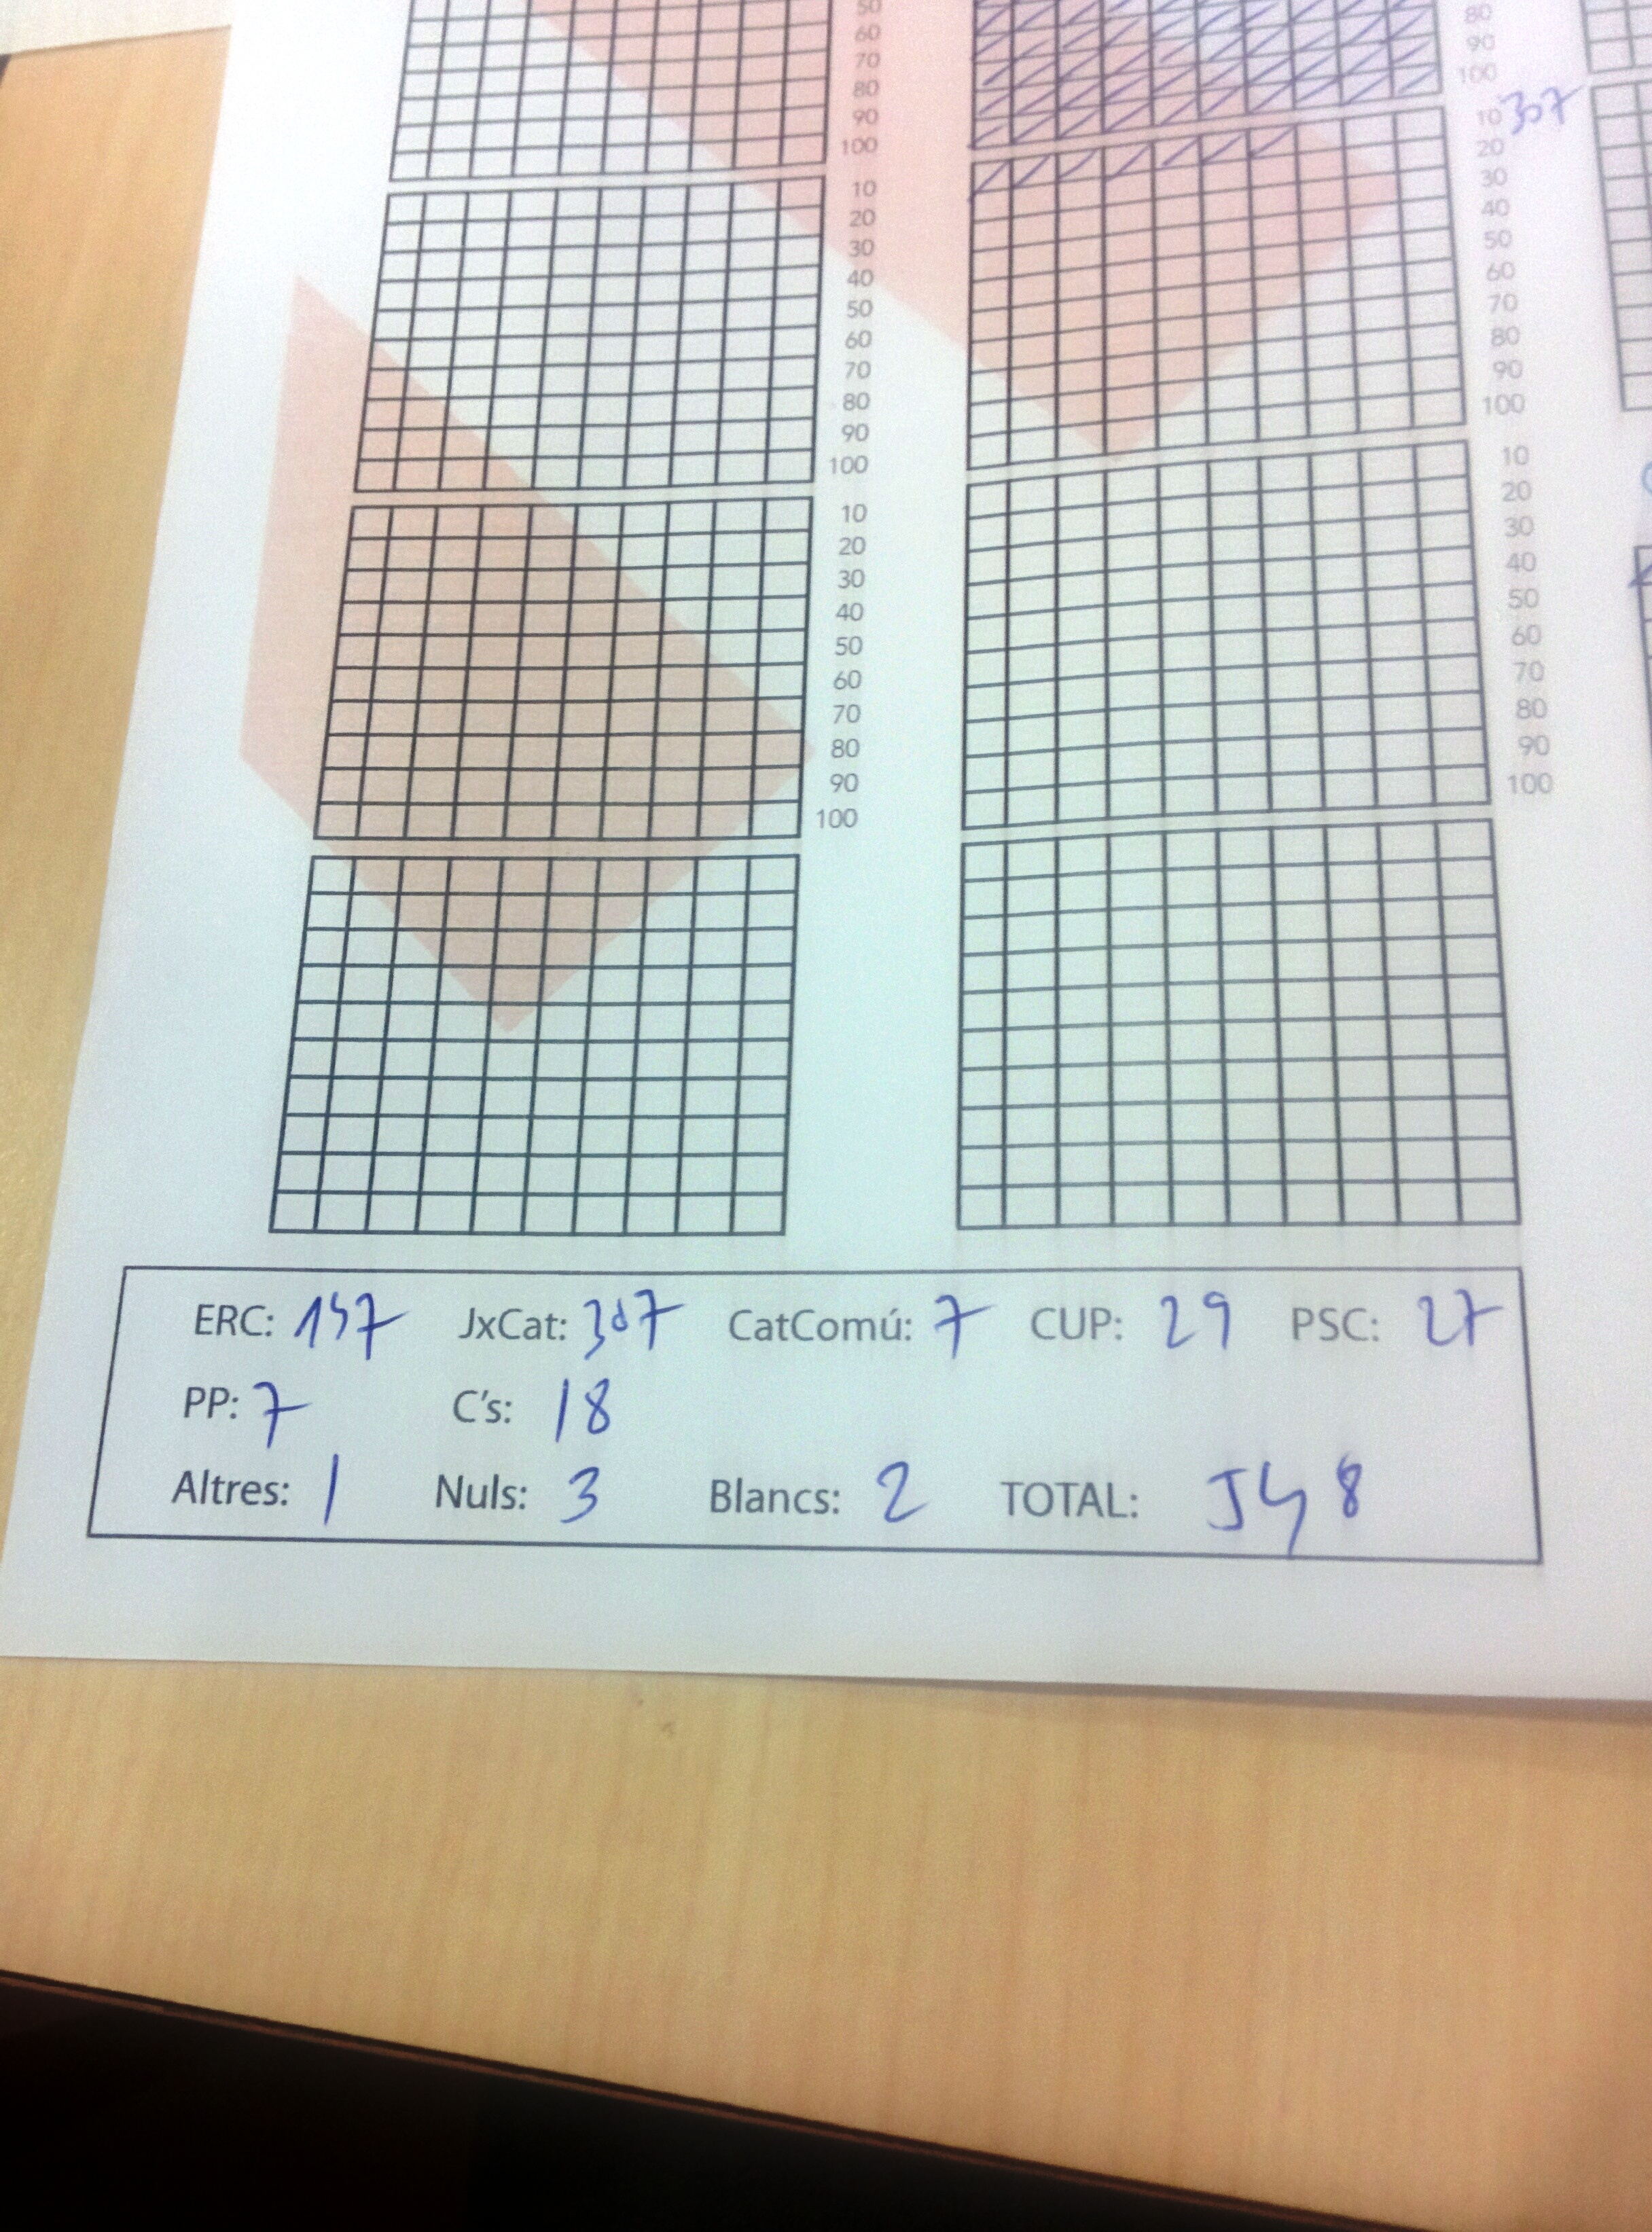 50
60
70
80
90
100
10
20
30
40
50
60
70
80
90
100
10
20
30
40
50
60
70
80
90
100
80
90
100
10 307
20
30
40
50
60
70
80
90
100
10
20
30
40
50
60
70
80
90
100
ERC: 147 JxCat: 307 CatComú: 7 CUP: 29 PSC: 27
PP: 7 C's: 18
Altres: 1 Nuls: 3 Blancs: 2 TOTAL: 548